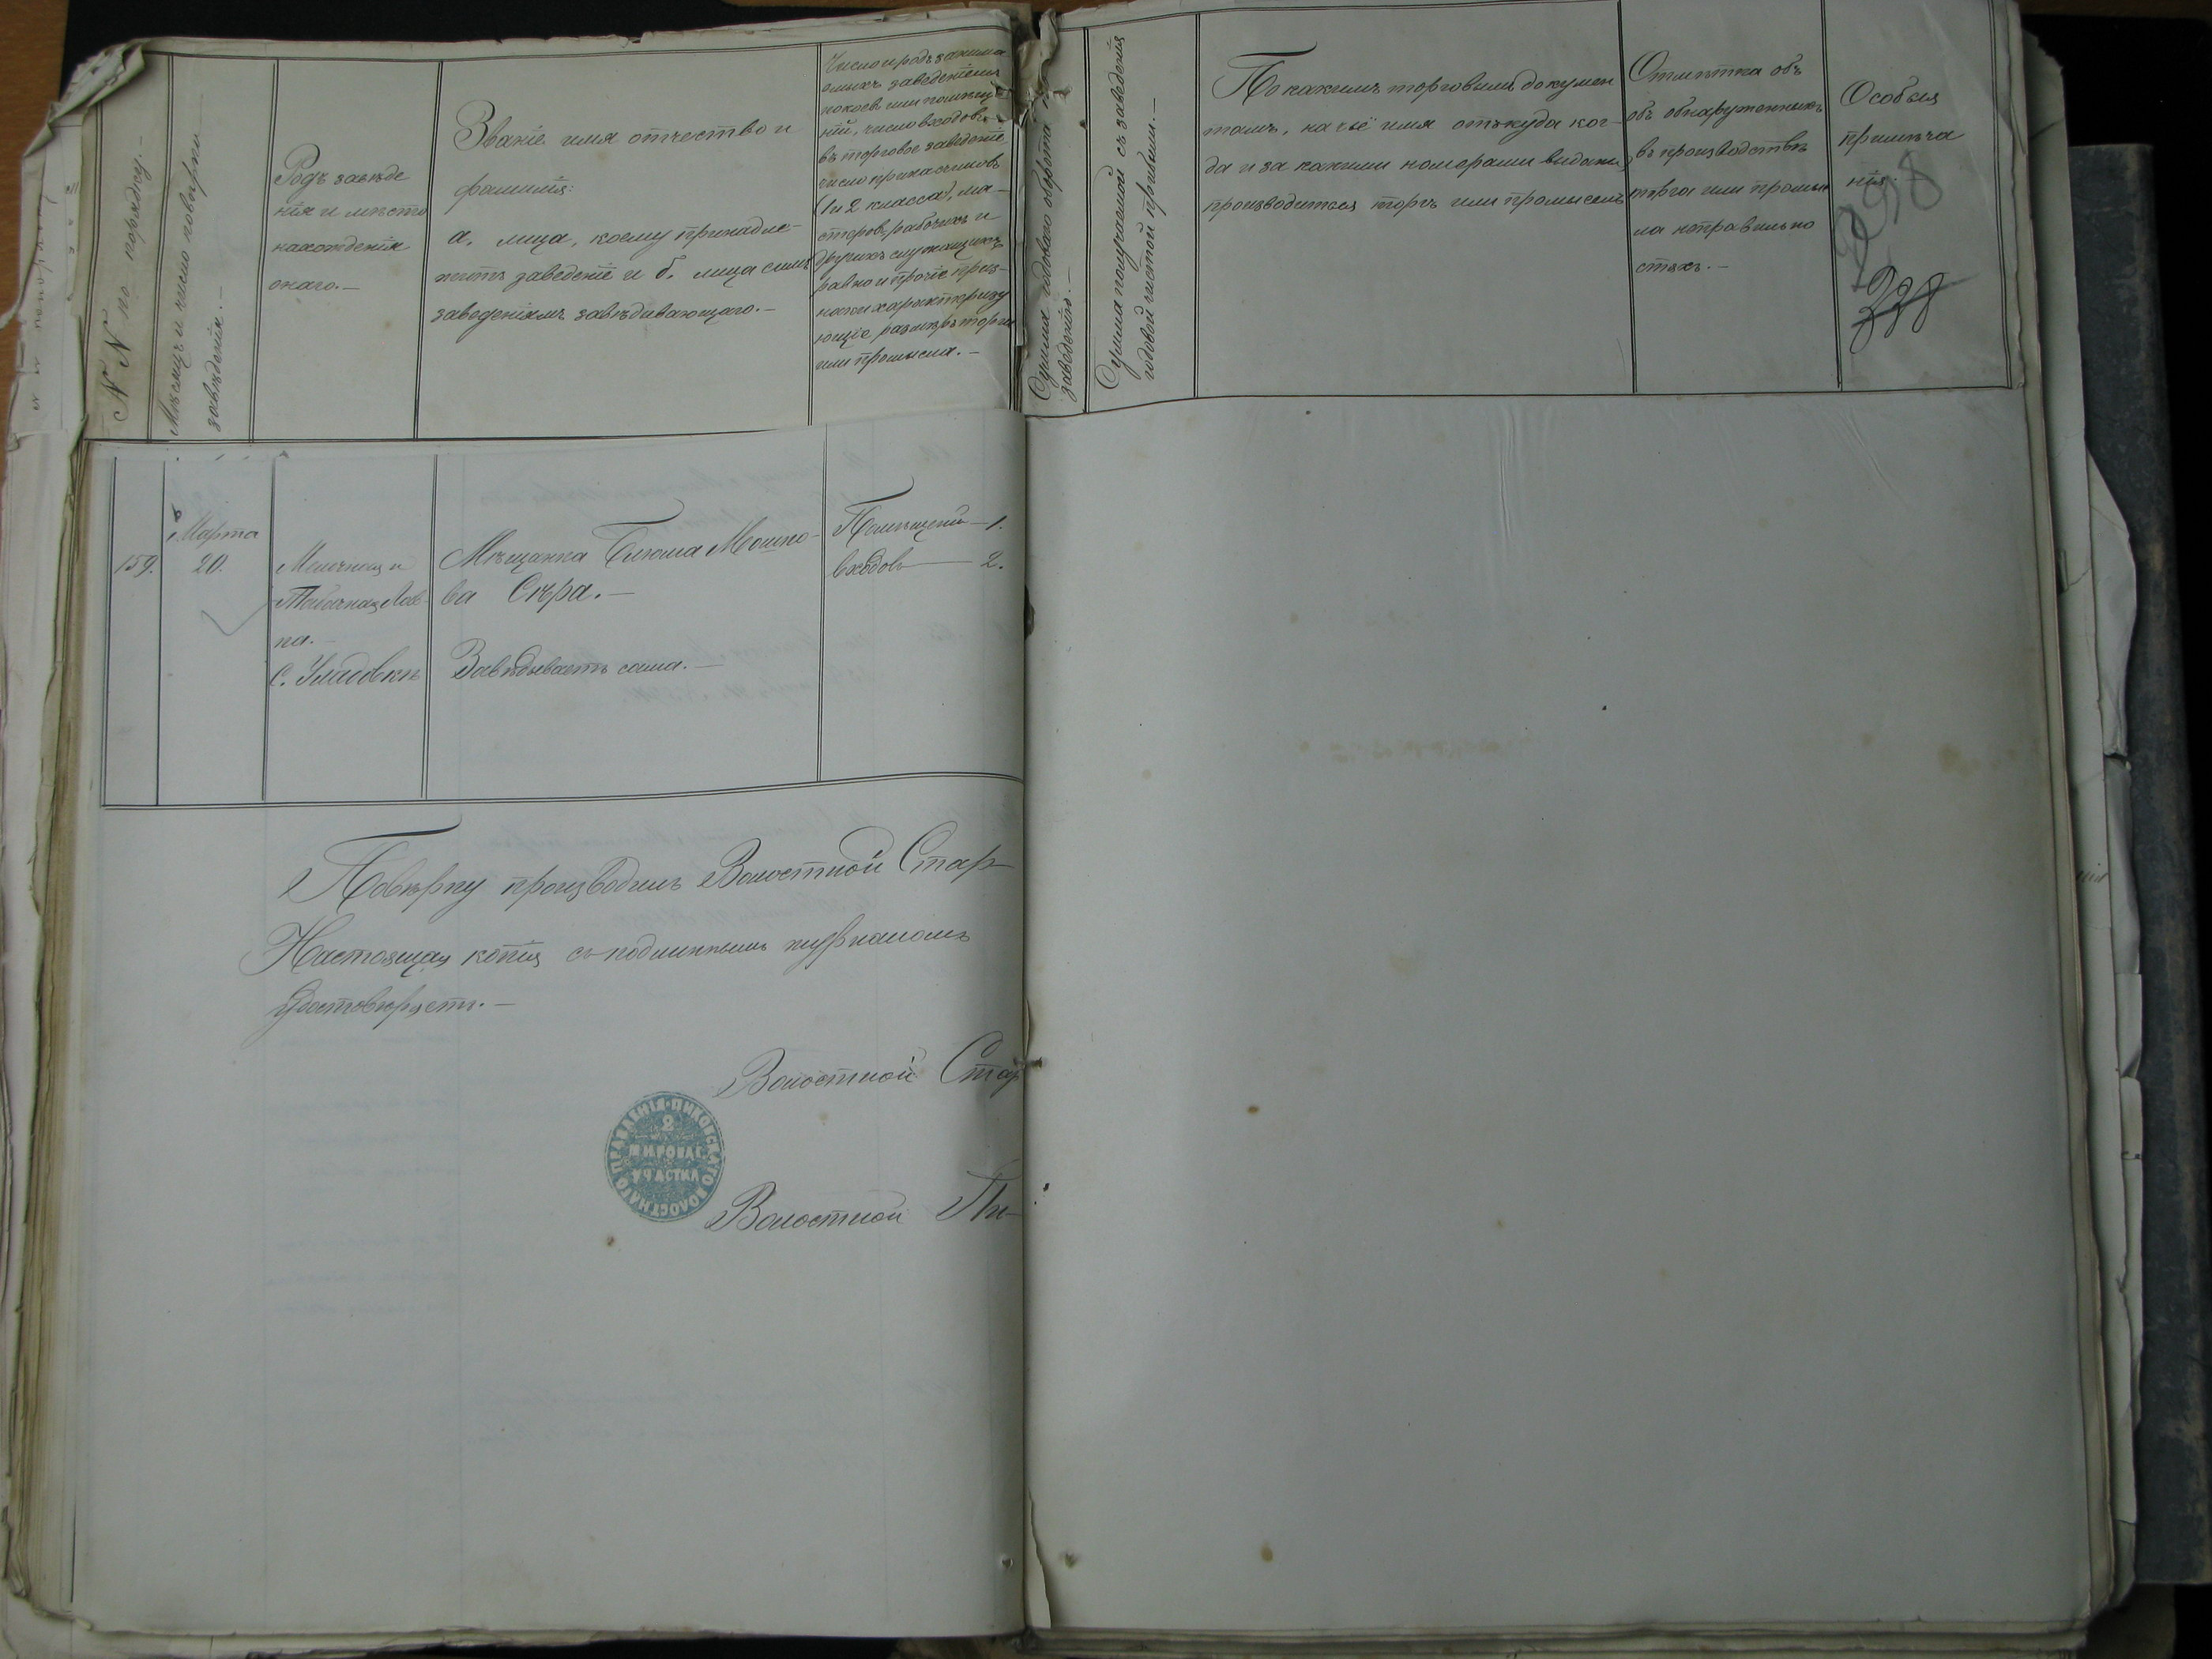 N N по порядку.—
Мѣсяцъ и число повѣрки
завѣденія.—
Родъ завѣде
нія и мѣсто
нахожденія
онаго.—
Званіе имя отчество и
фамилія:
а. лица, коему принадле-
житъ заведеніе и б. лица симъ
заведеніямъ завѣдывающаго.—
Число и родъ занима
емыхъ заведеніемъ
покоевъ или помѣще
ній, число входовъ
въ торговое заведеніе,
число прикащиковъ
(1 и 2 класса), ма-
стеровъ, рабочихъ и
другихъ служащихъ
равно и прочіе приз-
наки характеризу
ющіе размѣръ торга
или промысла.—
Сумма годоваго оборота по
заведенію.—
Сумма получаемой съ заведенія
годовой чистой прибыли.—
По какимъ торговымъ докумен
тамъ, на чьё имя откуда ког-
да и за какими номерами выданы,
производится торгъ или промыселъ
Отмѣтка объ
объ обнаруженныхъ
въ производствѣ
торга или промыс
ла неправильно
стяхъ.—
Особыя
примѣча
нія.—
298
338
159.
Марта
20.
Мелочная и
Табачная Лав-
ка.—
С. Уладовкѣ
Мѣщанка Блюма Мошко-
ва Сѣра.—
Завѣдываетъ сама.—
Помѣщеній—1.
входовъ—2.
Повѣрку производилъ Волостной Стар
Настоящая копія съ подлиннымъ журналомъ
удостовѣряетъ.—
Волостной Стар
ПРАВЛЕНІЯ ПИКОВСКАГО ВОЛОСТНАГО
2
МИРОВАГ.
УЧАСТКА
Волостной Пи-